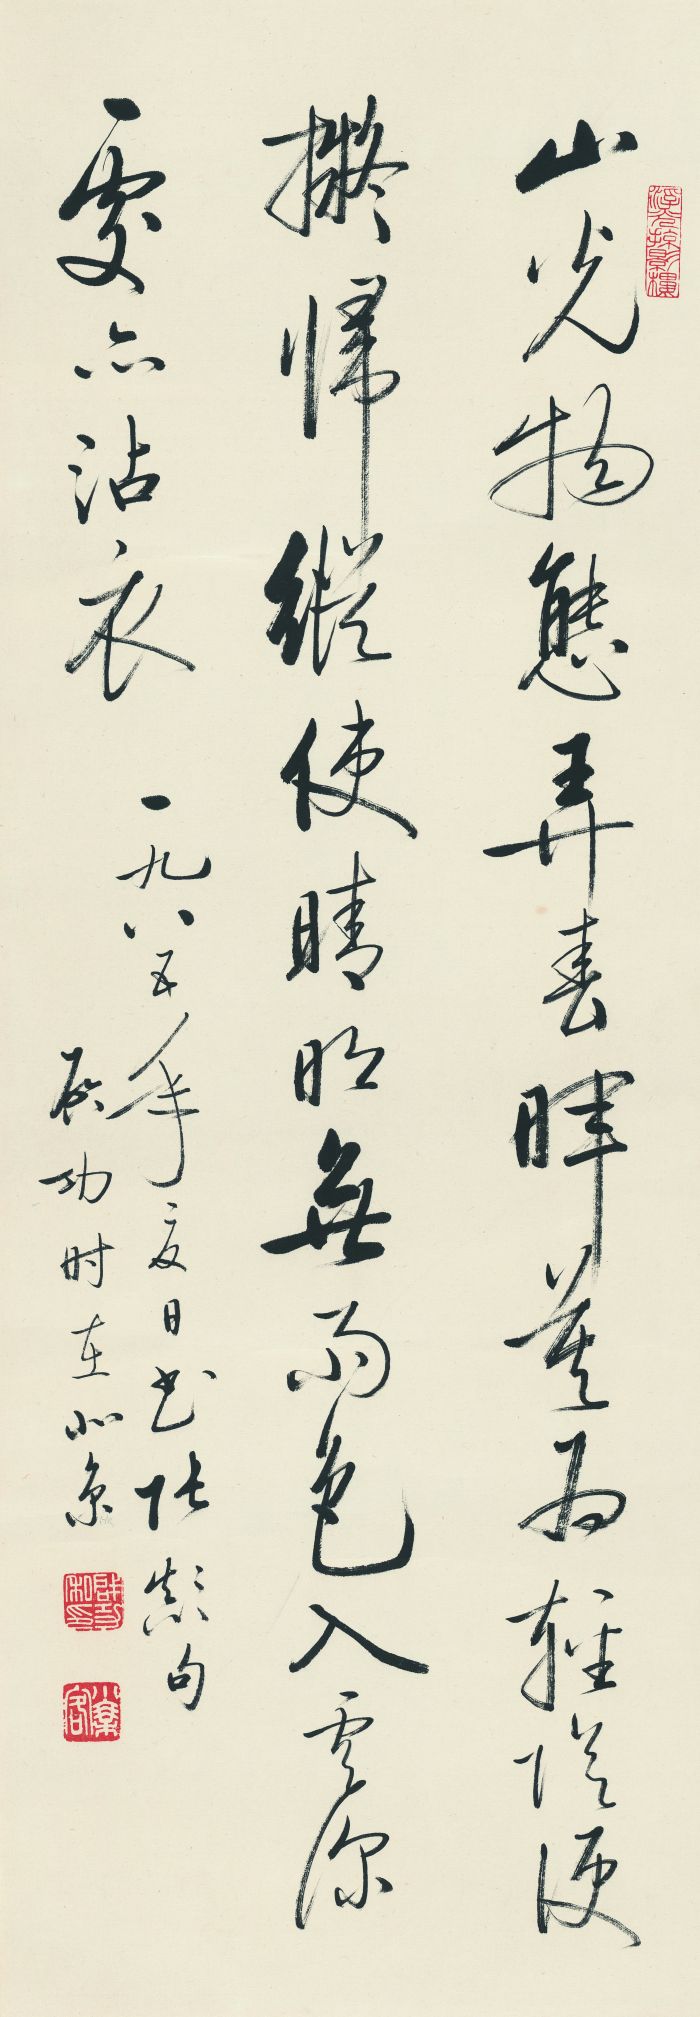 浮光掠影樓
山光物態弄春暉莫为輕陰便
擬歸縱使晴明無雨色入雲深
處亦沾衣
一九八五年夏日书张颠句
启功时在北京